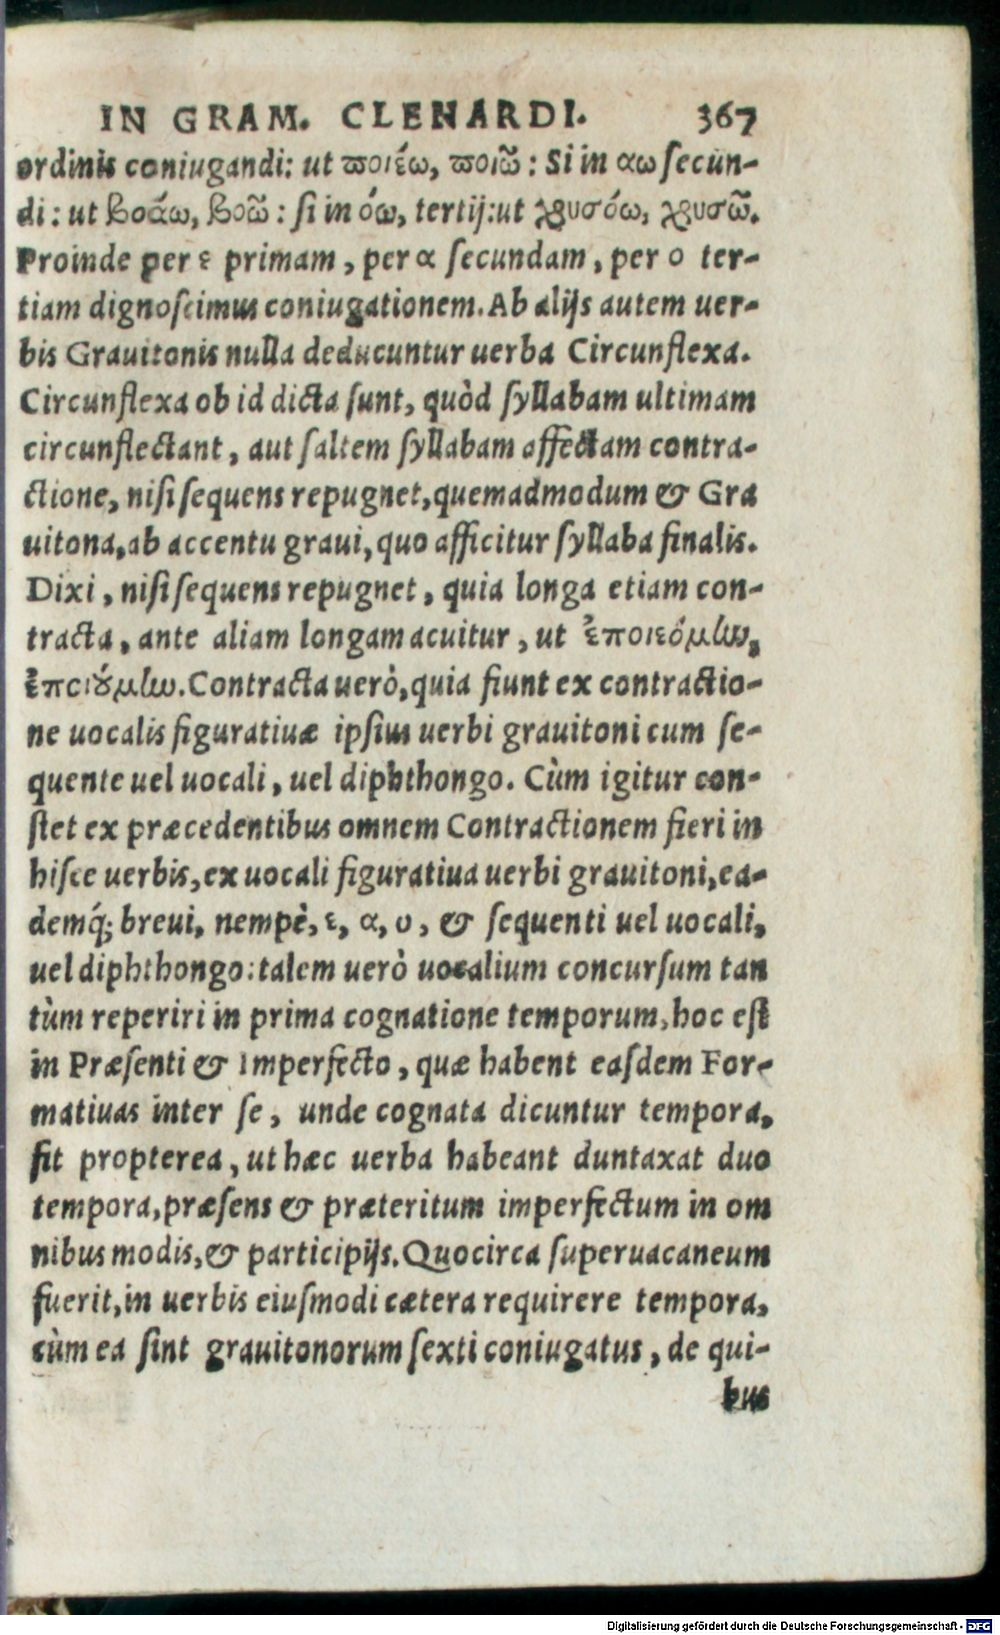 IN GRAM. CLENARDI. 367
ordinis coniugandi: ut ϖοιέω, ϖοιῶ: Si in αω ſecun-
di: ut βοάω, βοῶ: ſi in όω, tertij: ut χρυσόω, χρυσῶ.
Proinde per ε primam, per α ſecundam, per ο ter-
tiam dignoſcimus coniugationem. Ab alijs autem uer-
bis Grauitonis nulla deducuntur uerba Circunflexa.
Circunflexa ob id dicta ſunt, quòd ſyllabam ultimam
circunflectant, aut ſaltem ſyllabam affectam contra-
ctione, niſi ſequens repugnet, quemadmodum & Gra
uitona, ab accentu graui, quo afficitur ſyllaba finalis.
Dixi, niſi ſequens repugnet, quia longa etiam con-
tracta, ante aliam longam acuitur, ut ἐποιεόμην,
ἐποιούμην. Contracta uerò, quia fiunt ex contractio-
ne uocalis figuratiuæ ipſius uerbi grauitoni cum ſe-
quente uel uocali, uel diphthongo. Cùm igitur con-
ſtet ex præcedentibus omnem Contractionem fieri in
hiſce uerbis, ex uocali figuratiua uerbi grauitoni, ea-
demq́; breui, nempè, ε, α, ο, & ſequenti uel uocali,
uel diphthongo: talem uerò uocalium concurſum tan
tùm reperiri in prima cognatione temporum, hoc eſt
in Præſenti & Imperfecto, quæ habent eaſdem For-
matiuas inter ſe, unde cognata dicuntur tempora,
fit propterea, ut hæc uerba habeant duntaxat duo
tempora, præſens & præteritum imperfectum in om
nibus modis, & participijs. Quocirca ſuperuacaneum
fuerit, in uerbis eiuſmodi cætera requirere tempora,
cùm ea ſint grauitonorum ſexti coniugatus, de qui-
bus
Digitalisierung gefördert durch die Deutsche Forschungsgemeinschaft - DFG